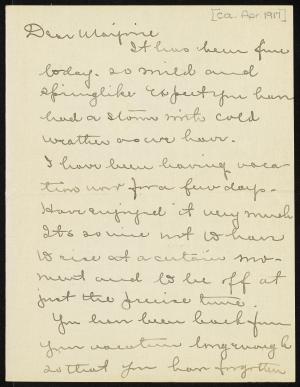 [ca. Apr 1917]
Dear Marjorie
It has been fine
today. so mild and
springlike Expect you have
had a storm with cold
weather as we have.
I have been having vaca
tion now for a few days.
Have enjoyed it very much
Its so nice not to have
to rise at a certain mo-
ment and to be off at
just the precise time.
You have been back from
your vacation long enough
so that you have forgotten